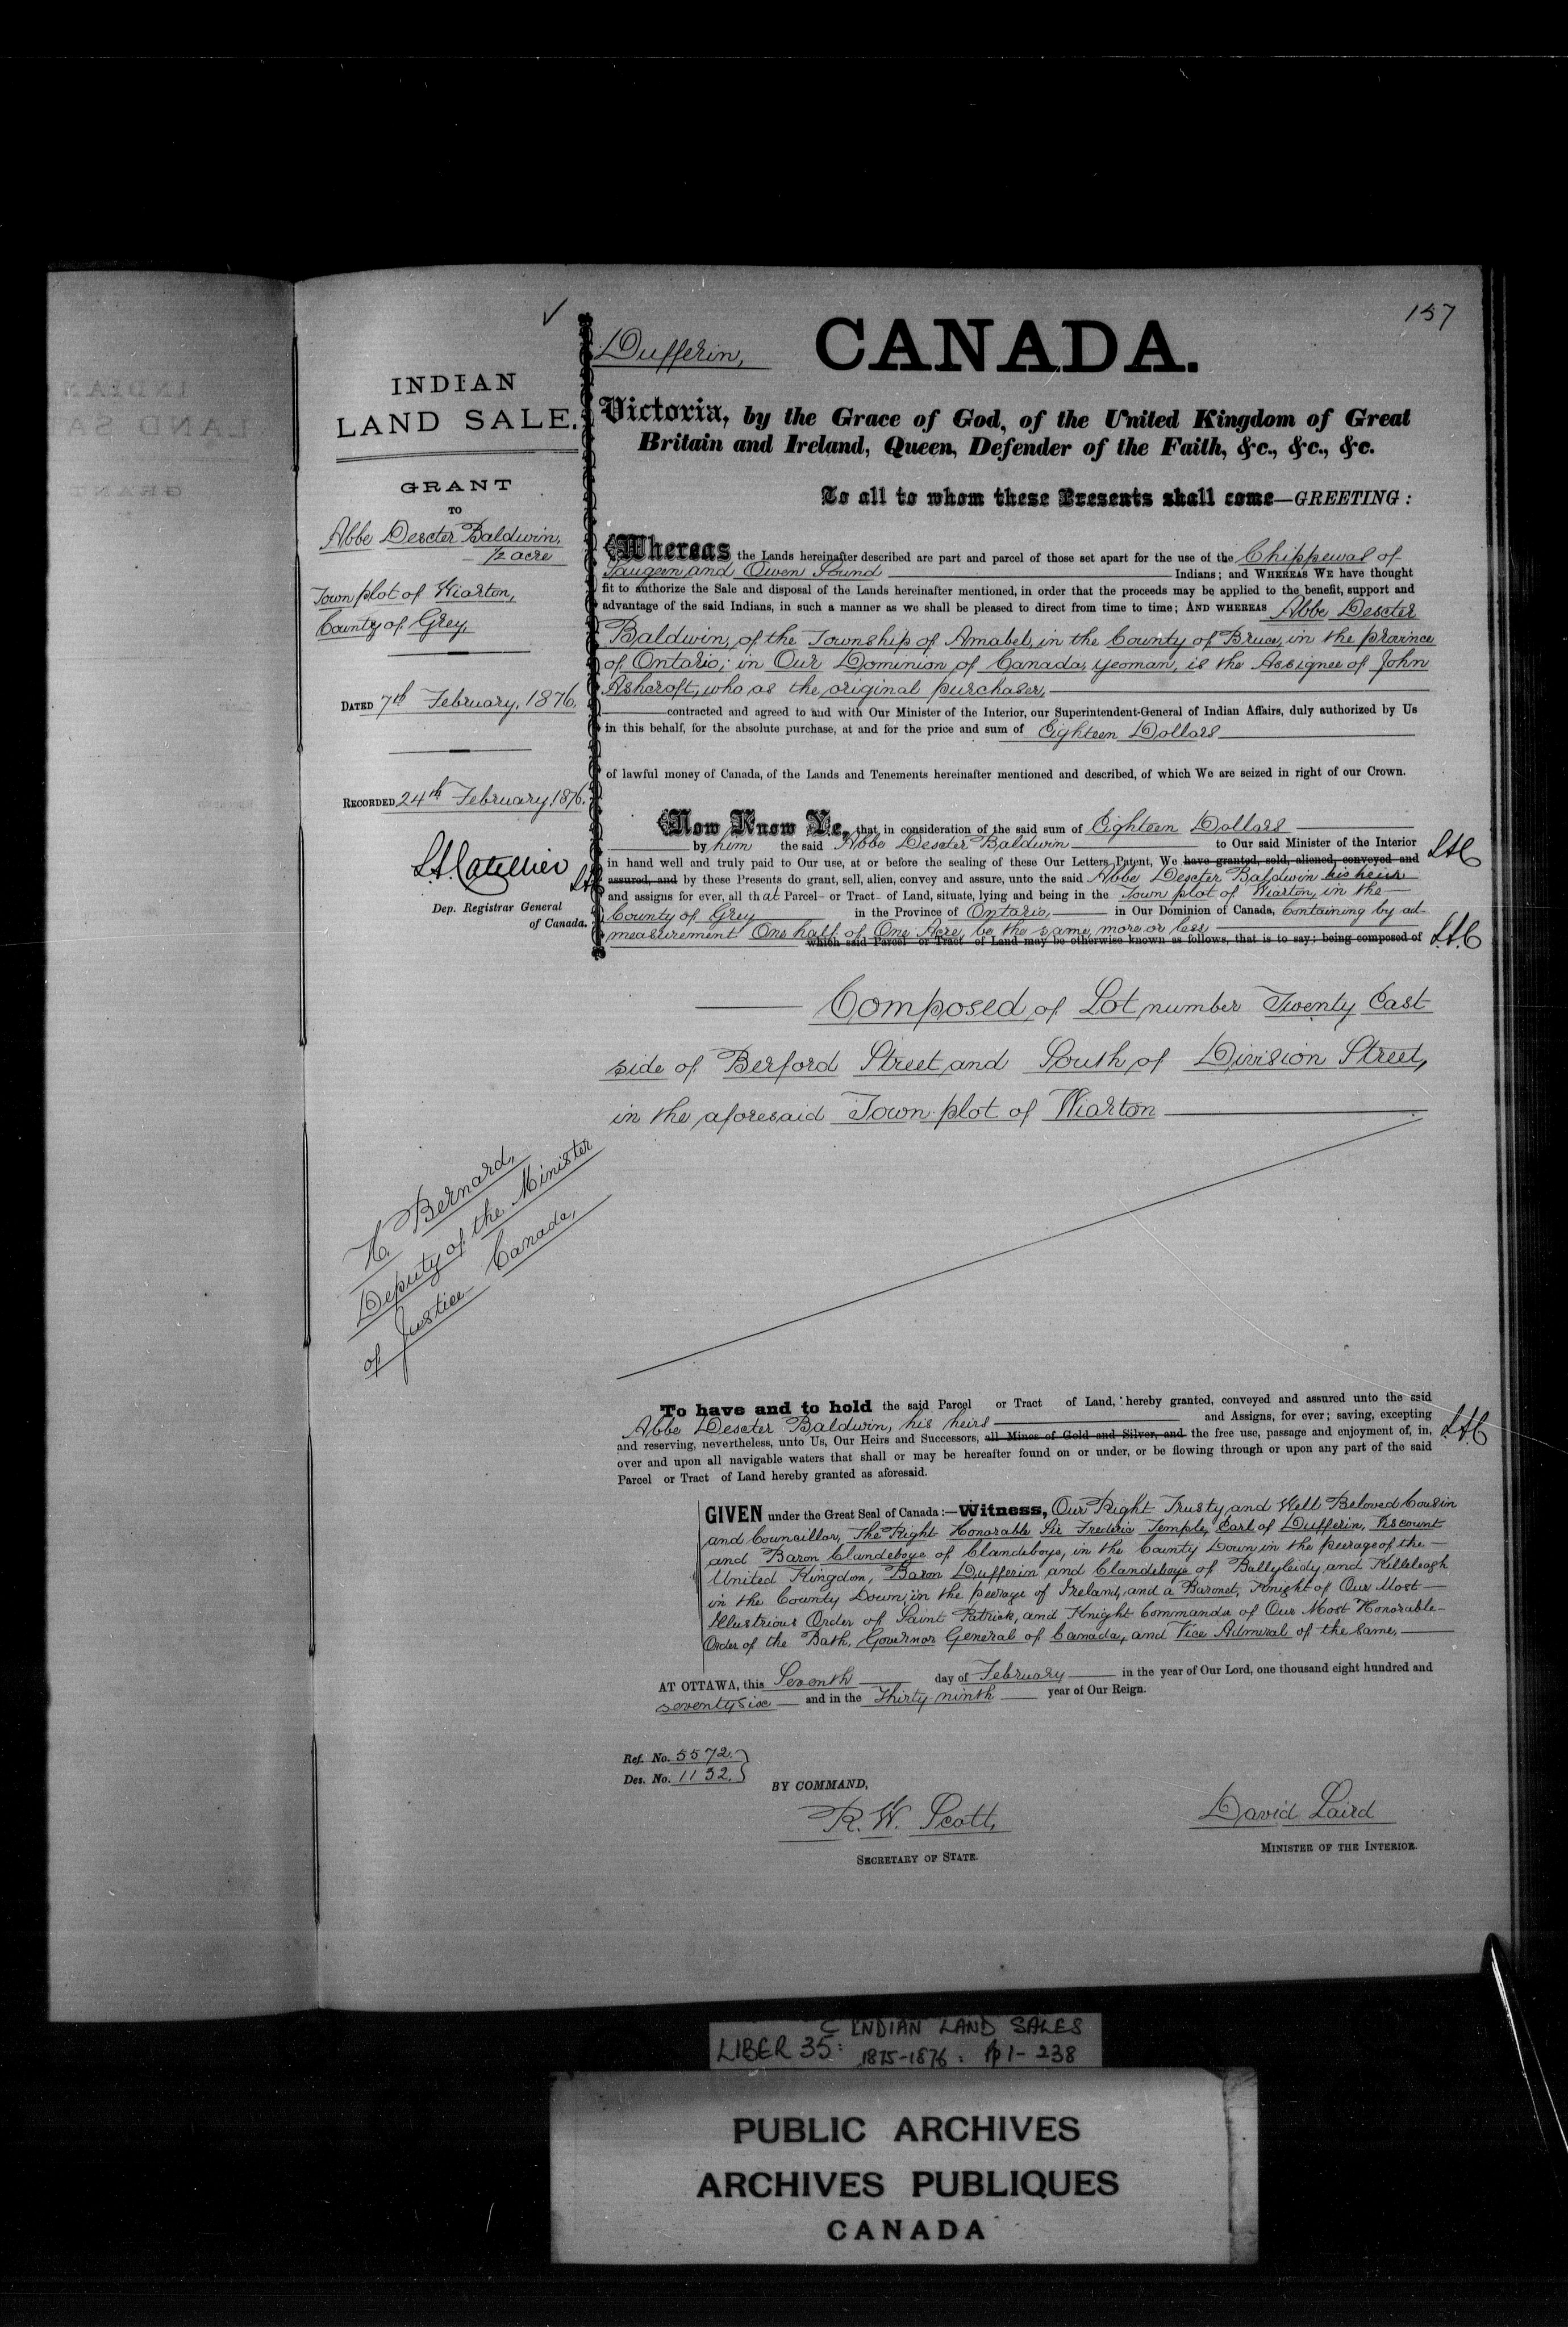 157
✓
INDIAN
LAND SALE.
GRANT
TO
Abbe Descter Baldwin,
½ acre
Town plot of Wiarton,
County of Grey,
DATED 7th February, 1876.
RECORDED 24th February, 1876.
L.A. Catellier
Dep. Registrar General
of Canada.
H. Bernard,
Deputy of the Minister
of Justice Canada,
Dufferin,
CANADA.
Victoria, by the Grace of God, of the United Kingdom of Great
Britain and Ireland, Queen, Defender of the Faith, &c., &c., &c.
To all to whom these Presents shall come—GREETING:
Whereas the Lands hereinafter described are part and parcel of those set apart for the use of the Chippewas of
Saugeen and Owen Sound Indians; and WHEREAS WE have thought
fit to authorize the Sale and disposal of the Lands hereinafter mentioned, in order that the proceeds may be applied to the benefit, support and
advantage of the said Indians, in such a manner as we shall be pleased to direct from time to time; AND WHEREAS Abbe Descter
Baldwin, of the Township of Amabel, in the County of Bruce, in the province
of Ontario, in Our Dominion of Canada, yeoman, is the Assignee of John
Ashcroft, who as the original purchaser,
contracted and agreed to and with Our Minister of the Interior, our Superintendent-General of Indian Affairs, duly authorized by Us
in this behalf, for the absolute purchase, at and for the price and sum of Eighteen Dollars
of lawful money of Canada, of the Lands and Tenements hereinafter mentioned and described, of which We are seized in right of our Crown.
Now Know Ye, that in consideration of the said sum of Eighteen Dollars
by him the said Abbe Descter Baldwin to Our said Minister of the Interior
in hand well and truly paid to Our use, at or before the sealing of these Our Letters Patent, We have granted, sold, aliened, conveyed and L.A.C
L.A.C assured, and by these Presents do grant, sell, alien, convey and assure, unto the said Abbe Descter Baldwin his heirs
and assigns for ever, all that Parcel or Tract of Land, situate, lying and being in the Town plot of Wiarton, in the
County of Grey in the Province of Ontario, in Our Dominion of Canada, Containing by ad-
measurement One half of One Acre, be the same more or less
which said Parcel or Tract of Land may be otherwise known as follows, that is to say; being composed of L.A.C
Composed of Lot number Twenty East
side of Berford Street and South of Division Street,
in the aforesaid Town plot of Wiarton
To have and to hold the said Parcel or Tract of Land, hereby granted, conveyed and assured unto the said
Abbe Descter Baldwin, his heirs and Assigns, for ever; saving, excepting
and reserving, nevertheless, unto Us, Our Heirs and Successors, all Mines of Gold and Silver, and the free use, passage and enjoyment of, in, L.A.C
over and upon all navigable waters that shall or may be hereafter found on or under, or be flowing through or upon any part of the said
Parcel or Tract of Land hereby granted as aforesaid.
GIVEN under the Great Seal of Canada:—Witness, Our Right Trusty and Well Beloved Cousin
and Councillor, The Right Honorable Sir Frederic Temple, Earl of Dufferin, Viscount
and Baron Clandeboye of Clandeboye, in the County Down in the peerage of the
United Kingdom, Baron Dufferin and Clandeboye of Ballyleidy and Killeleagh
in the County Down, in the peerage of Ireland, and a Baronet, Knight of Our Most
Illustrious Order of Saint Patrick, and Knight Commander of Our Most Honorable
Order of the Bath, Governor General of Canada, and Vice Admiral of the same,
AT OTTAWA, this Seventh day of February in the year of Our Lord, one thousand eight hundred and
seventy six and in the Thirty ninth year of Our Reign.
Ref. No. 5572.
Des. No. 1132.
BY COMMAND,
R. W. Scott,
SECRETARY OF STATE.
David Laird
MINISTER OF THE INTERIOR.
LIBER 35: INDIAN LAND SALES
1875-1876: pp 1-238
PUBLIC ARCHIVES
ARCHIVES PUBLIQUES
CANADA